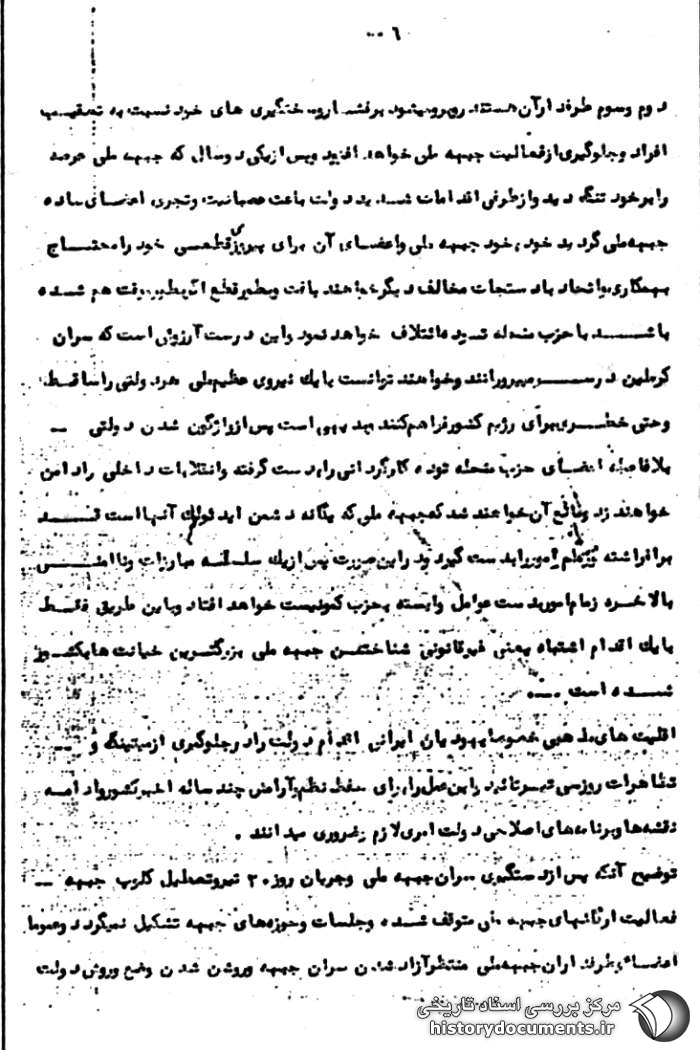 ۶ ...
دوم وسوم طرفدارآن هستند روبروميشود برفشار وسختگيرى هاى خود نسبت به تعقيب
افراد وجلوگيرى ازفعاليت جبهه ملى خواهد افزود وپس ازيكى دوسال كه جبهه ملى عرصه
رابرخود تنگ ديد وازطرفى اقدامات شديد دولت باعث عصبانيت وتجرى اعضاى ساده
جبهه ملى گرديد خود بخود جبهه ملى واعضاى آن براى پيروزى قطعى خود رامحتاج
بهمكارى واتحاد بادستجات مخالف ديگر خواهند يافت وبطور قطع اگر بطور موقت هم شده
باشد باحزب منحله توده ائتلاف خواهد نمود واين درست آرزوئى است كه سران
كرملين درسر ميپرورانند وخواهند توانست بايك نيروى عظيم ملى هر دولتى راساقط
وحتى خطرى براى رژيم كشور فراهم كنند بديهى است پس ازواژگون شدن دولتى --
بلافاصله اعضاى حزب منحله توده كارگردانى رابدست گرفته وانقلابات داخلى رادامن
خواهند زد ومانع آن خواهند شد كه جبهه ملى كه يگانه دشمن ايدئولك آنها است قد
برافراشته وزمام امور رابدست گيرد ودراين صورت پس ازيك سلسله مبارزات وناامنى
بالاخره زمام امور بدست عوامل وابسته بحزب كمونيست خواهد افتاد وباين طريق فقط
بايك اقدام اشتباه يعنى غيرقانونى شناختن جبهه ملى بزرگترين خيانت هابكشور
شده است ...
اقليت هاى مذهبى خصوصا يهوديان ايرانى اقدام دولت رادرجلوگيرى ازميتينگ و --
تظاهرات روزسى تير تائيد واين عمل رابراى حفظ نظم وآرامش چند ساله اخير كشور وادامه
نقشه ها وبرنامه هاى اصلاحى دولت امرى لازم وضرورى ميدانند .
توضيح آنكه پس ازدستگيرى سران جبهه ملى وجريان روز ۳۰ تير وتعطيل كلوپ جبهه --
فعاليت ارگانهاى جبهه ملى متوقف شده وجلسات وحوزه هاى جبهه تشكيل نميگردد وعموما
اعضاء وطرفداران جبهه ملى منتظر آزاد شدن سران جبهه وروشن شدن وضع وروش دولت
مرکز بررسی اسناد تاریخی
historydocuments.ir